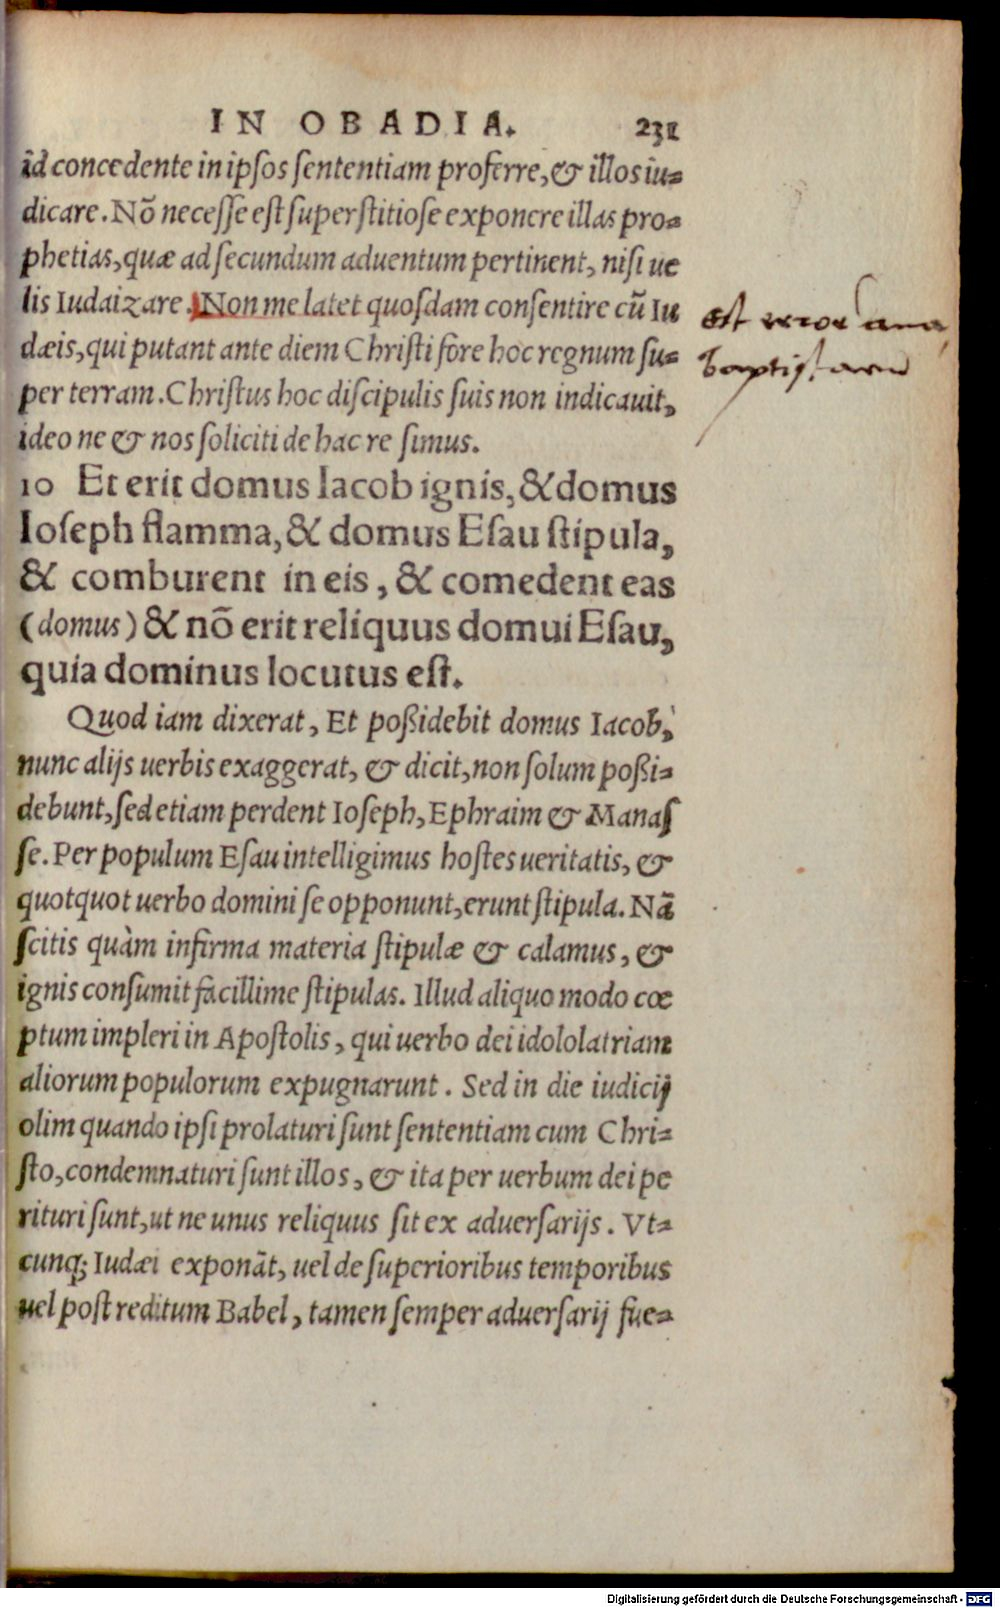 IN OBADIA. 231
id concedente in ipſos ſententiam proferre, & illos iu-
dicare. Nõ neceſſe eſt ſuperſtitioſe exponere illas pro-
phetias, quæ ad ſecundum aduentum pertinent, niſi ue
lis Iudaizare. Non me latet quoſdam conſentire cũ Iu
dæis, qui putant ante diem Chriſti fore hoc regnum ſu-
per terram. Chriſtus hoc diſcipulis ſuis non indicauit,
ideo ne & nos ſoliciti de hac re ſimus.
est error ana
baptistarum
10 Et erit domus Iacob ignis, & domus
Ioſeph flamma, & domus Eſau ſtipula,
& comburent in eis, & comedent eas
(domus) & nõ erit reliquus domui Eſau,
quia dominus locutus eſt.
Quod iam dixerat, Et poßidebit domus Iacob,
nunc alijs uerbis exaggerat, & dicit, non ſolum poßi-
debunt, ſed etiam perdent Ioſeph, Ephraim & Manaſ
ſe. Per populum Eſau intelligimus hoſtes ueritatis, &
quotquot uerbo domini ſe opponunt, erunt ſtipula. Nã
ſcitis quàm infirma materia ſtipulæ & calamus, &
ignis conſumit facillime ſtipulas. Illud aliquo modo cœ
ptum impleri in Apoſtolis, qui uerbo dei idololatriam
aliorum populorum expugnarunt. Sed in die iudicij
olim quando ipſi prolaturi ſunt ſententiam cum Chri-
ſto, condemnaturi ſunt illos, & ita per uerbum dei pe
rituri ſunt, ut ne unus reliquus ſit ex aduerſarijs. Vt-
cunq; Iudæi exponãt, uel de ſuperioribus temporibus
uel poſt reditum Babel, tamen ſemper aduerſarij fue-
Digitalisierung gefördert durch die Deutsche Forschungsgemeinschaft - DFG